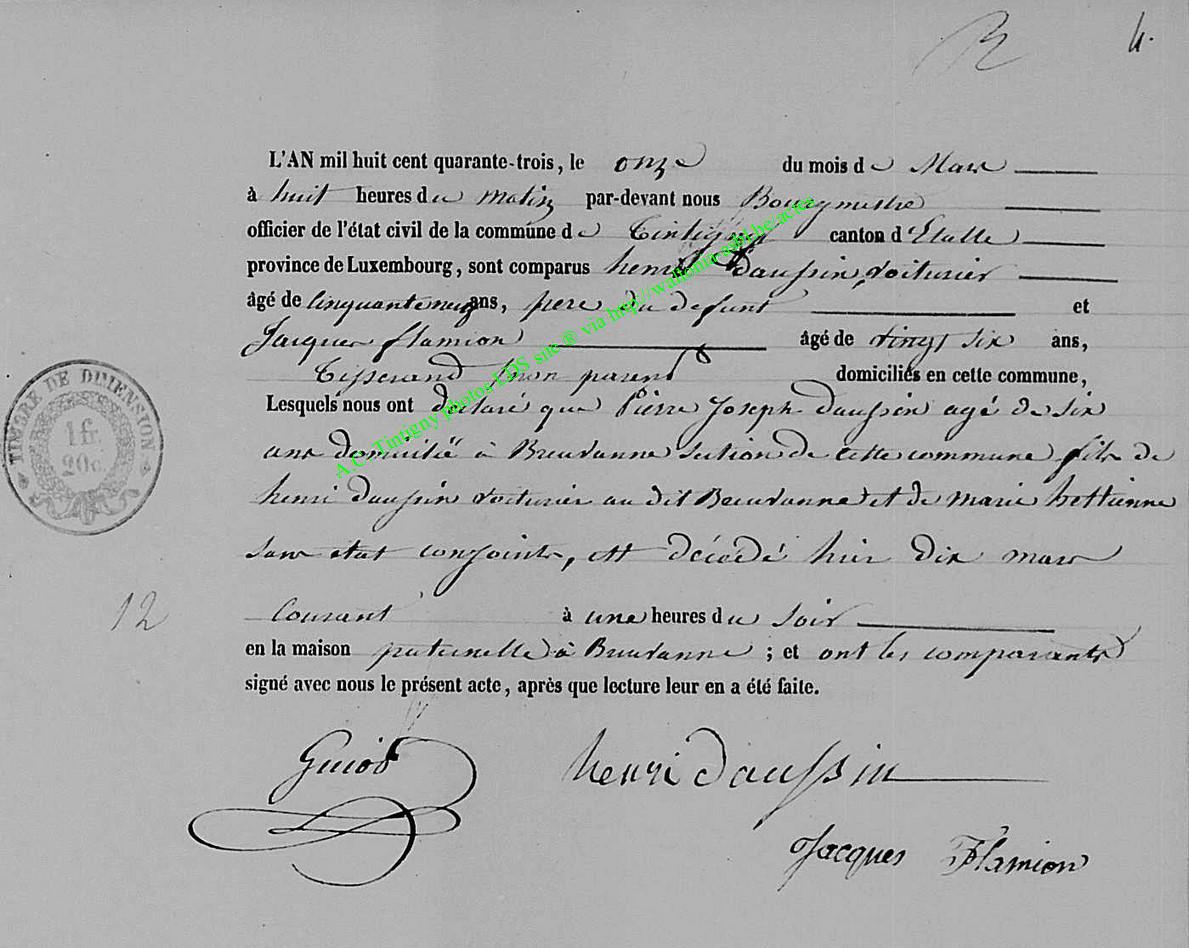 4.
L'AN mil huit cent quarante-trois, le onze du mois de Mars
à huit heures du matin par-devant nous Bourgmestre
officier de l'état civil de la commune de Tintigny canton d'Etalle
province de Luxembourg, sont comparus henri Daussin, voiturier
âgé de cinquante neuf ans, pere du defunt et
Jacques flamion âgé de vingt six ans,
Tisserand, non parent domiciliés en cette commune,
Lesquels nous ont declaré que Pierre Joseph Daussin agé de six
ans domicilié à Breuvanne section de cette commune fils de
henri Daussin voiturier au dit Breuvanne et de marie hettienne
sans etat conjoints, est décédé hier dix mars
12
Courant à une heures du soir
en la maison paternelle à Breuvanne ; et ont les comparants
signé avec nous le présent acte, après que lecture leur en a été faite.
TIMBRE DE DIMENSION
1 fr.
20c.
Guiot henri Daussin
Jacques Flamion
A.C. Tintigny photos LDS site ® via http://wallonia-asbl.be/actes